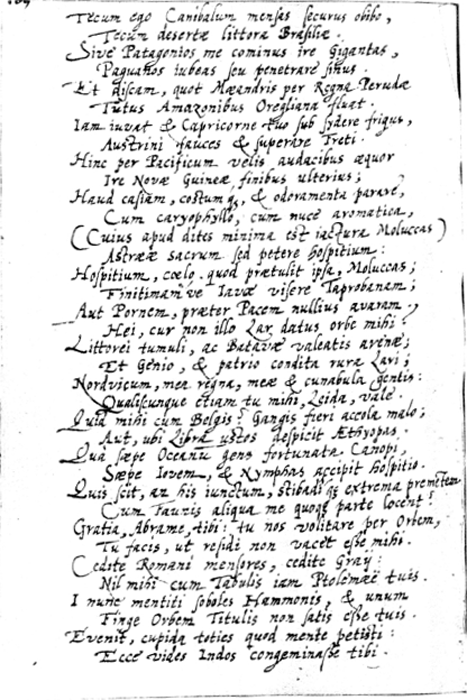 Tecum ego Canibalum mensas securus obibo,
Tecum desertæ littora Brasiliæ.
Sive Patagonios me cominus ire Gigantas,
Paguanos iubeas seu penetrare sinus.
Et discam, quot Mæandris per Regna Perudæ
Tutus Amazonibus Oregliana fluat.
Iam iuvat & Capricorne tuo sub sydere frigus,
Austrini fauces & superare Freti.
Hinc per Pacificum velis audacibus æquor
Ire Novæ Guineæ finibus ulterius;
Haud casiam, costumq;, & odoramenta parare,
Cum caryophyllo, cum nuce aromatica,
(Cuius apud dites minima est iactura Moluccas)
Astrææ sacrum sed petere hospitium:
Hospitium, cœlo quod prætulit ipsa, Moluccas;
Finitimam've Iavæ visere Taprobanam;
Aut Pornem, præter Pacem nullius avaram.
Hei, cur non illo Lar datus orbe mihi?
Littorei tumuli, ac Batavæ valeatis arenæ;
Et Genio, & patrio condita rura Lari;
Nordvicum, mea regna, meæ & cunabula gentis:
Qualiscunque etiam tu mihi, Leida, vale.
Quid mihi cum Belgis? Gangis fieri accola malo;
Aut, ubi Libra ustos despicit Æthyopas.
Quà sæpe Oceanu gens fortunata Canopi,
Sæpe Iovem, & Nymphas accipit hospitio.
Quis scit, an his iunctum, stibadiq; extrema prementem
Cum Faunis aliqua me quoq; parte locent?
Gratia, Abrame, tibi: tu nos volitare per Orbem,
Tu facis, ut residi non vacet esse mihi.
Cedite Romani mensores, cedite Graÿ:
Nil mihi cum Tabulis iam Ptolemæe tuis.
I nunc mentiti soboles Hammonis, & unum
Finge Orbem Titulis non satis esse tuis.
Evenit, cupida toties quod mente petisti:
Ecce vides Indos congeminasse tibi.